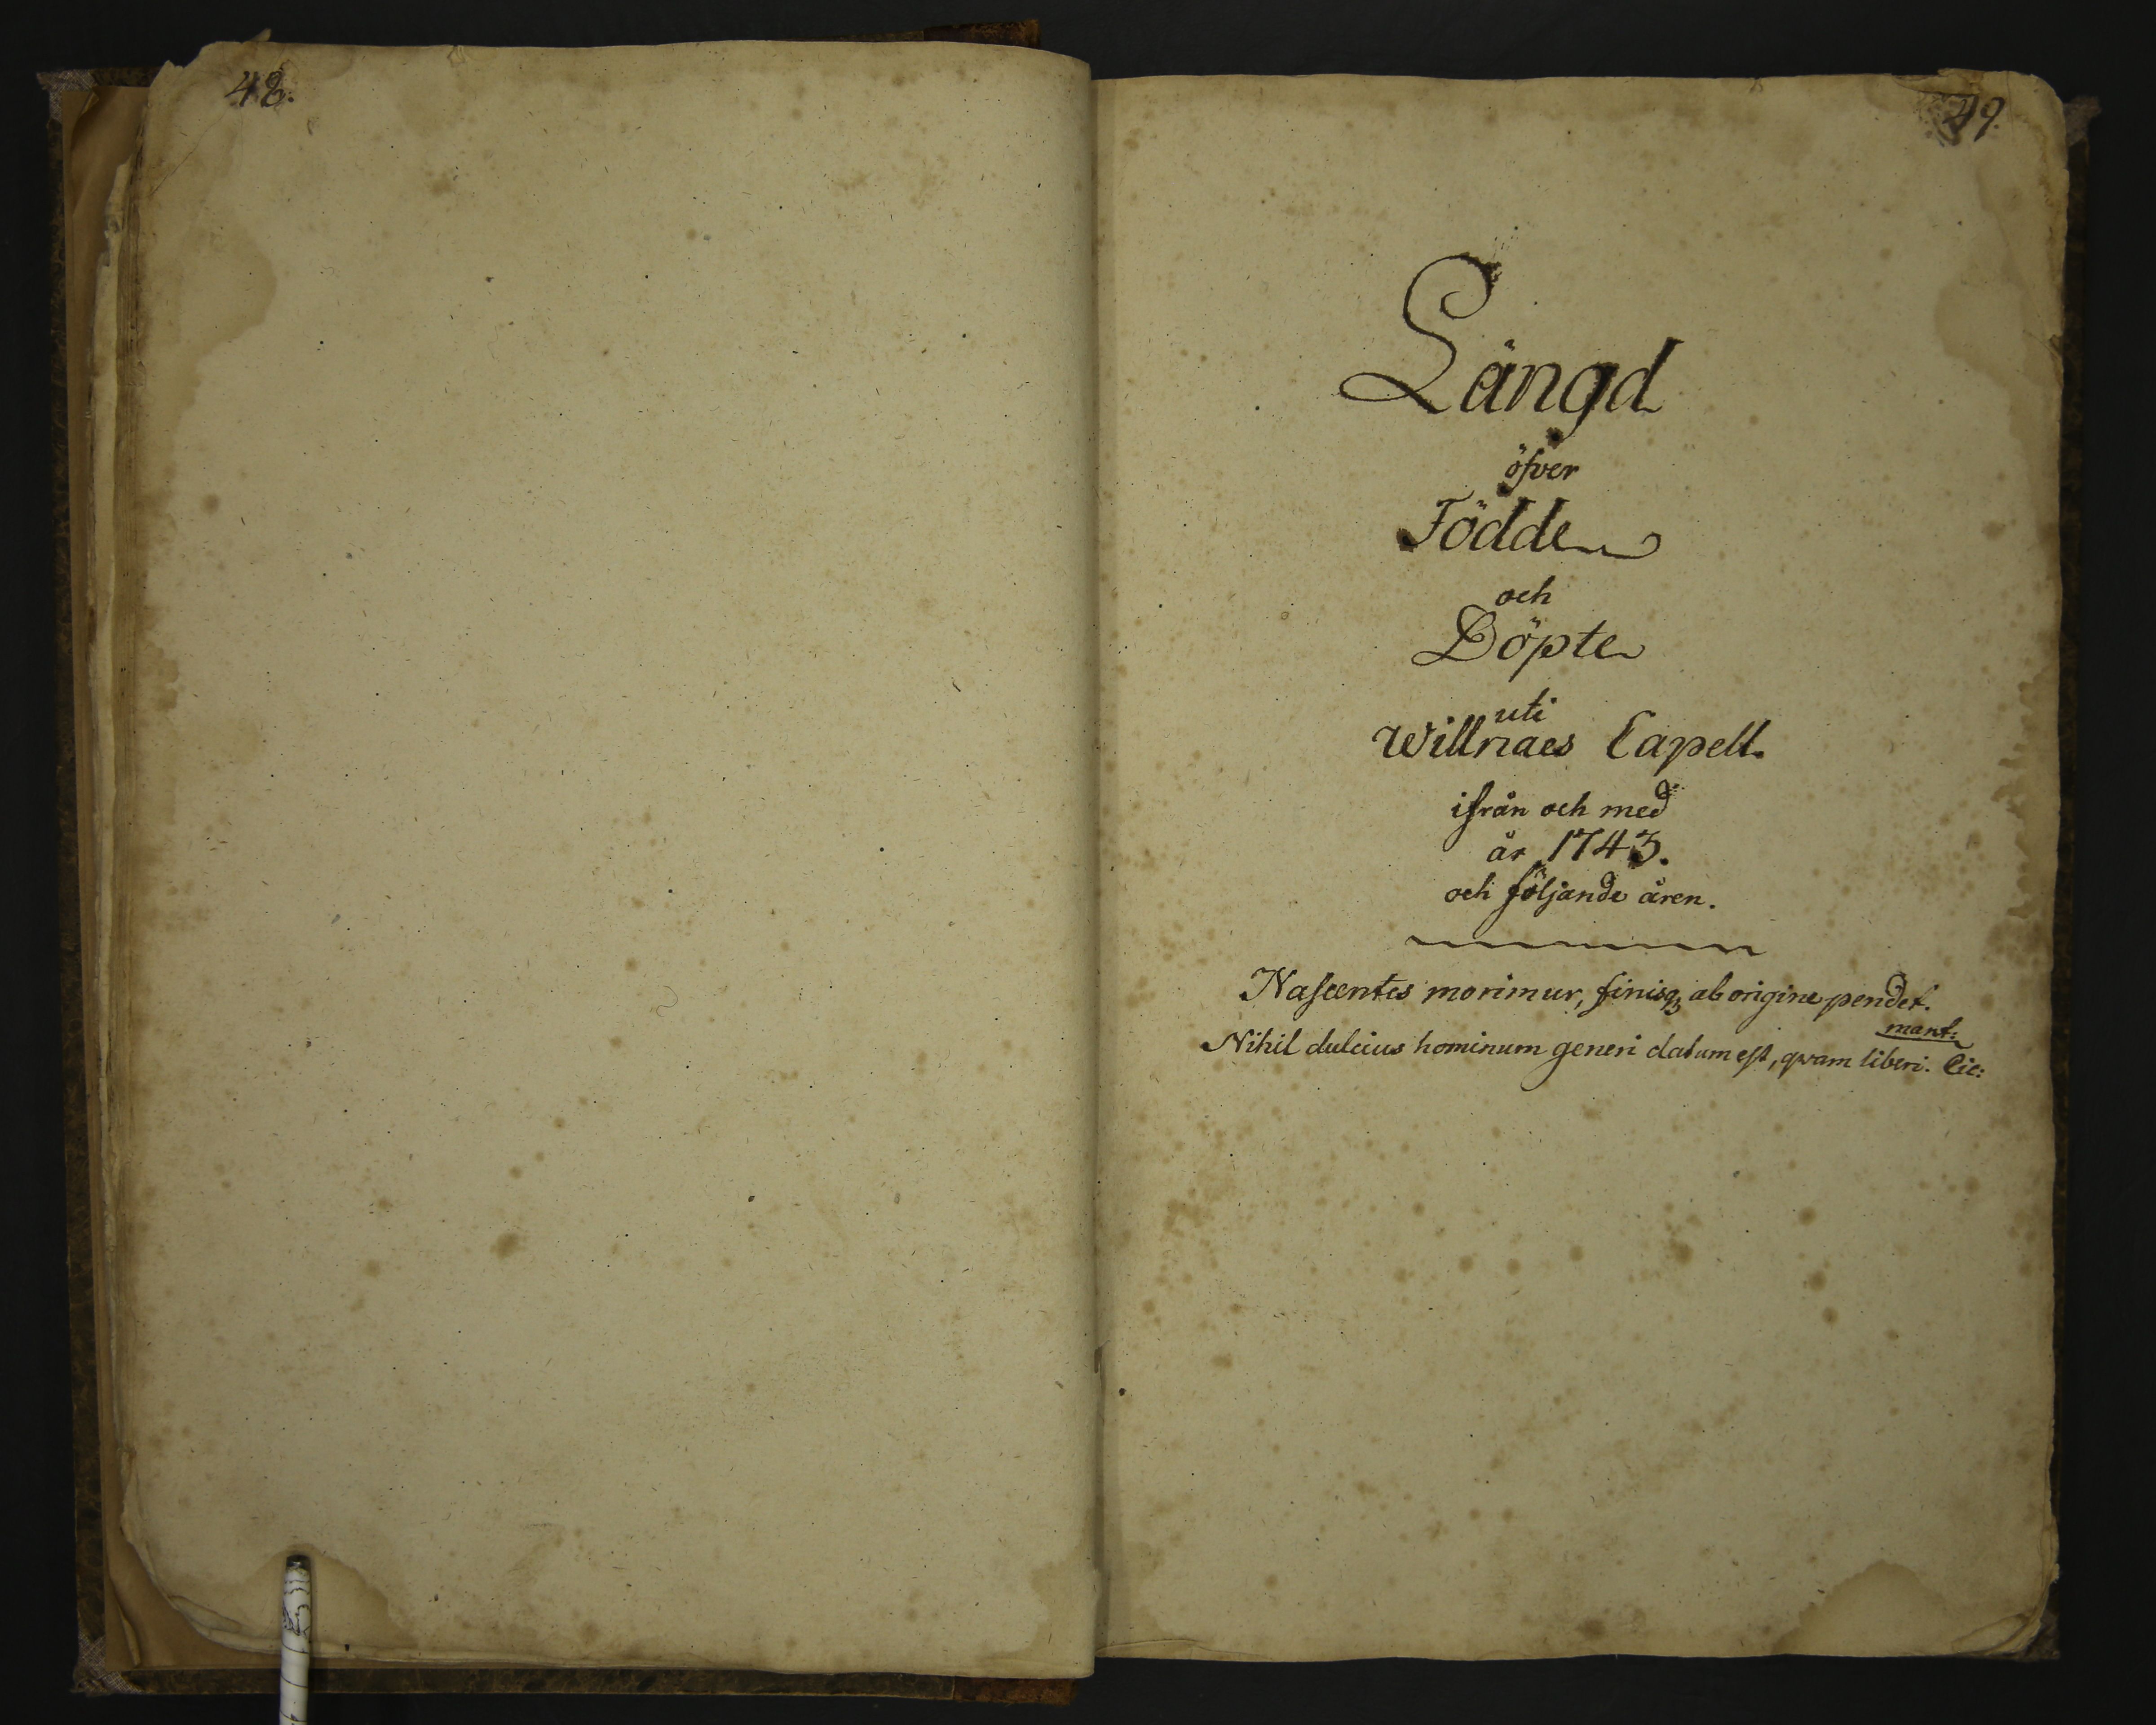 48.
49.
Längd
öfver
Födde
och
Döpte
uti
Willnaes Capell.
ifrån och med
år 1743.
och följande åren.
Nascentes morimur, finisq; ab origine pendet.
mant:
Nihil dulcius hominum generi datum est, qvam liberi. Cic: